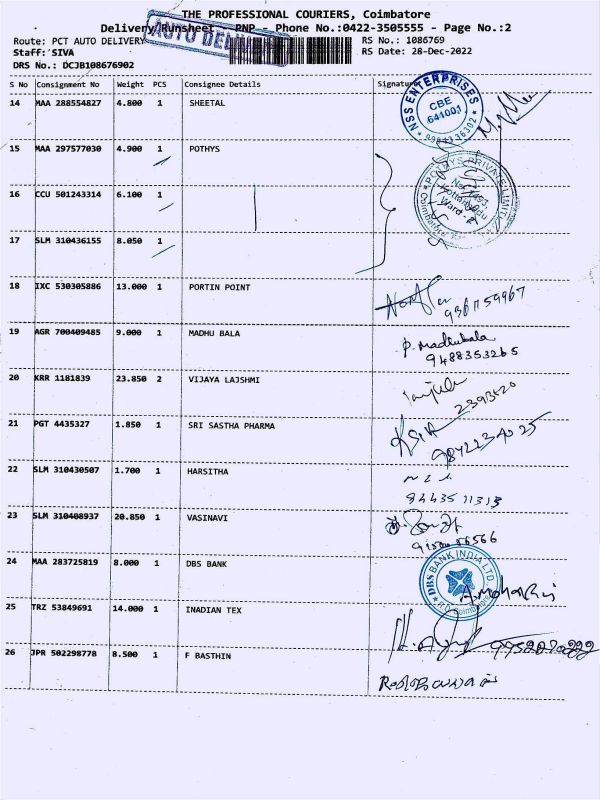 THE PROFESSIONAL COURIERS, Coimbatore
Delivery Runsheet - PNP - Phone No.:0422-3505555 - Page No.:2
AUTO DELIVERY
Route: PCT AUTO DELIVERY RS No.: 1086769
Staff: SIVA RS Date: 28-Dec-2022
DRS No.: DCJB108676902
S No Consignment No Weight PCS Consignee Details Signature
14 MAA 288554827 4.800 1 SHEETAL
NSS ENTERPRISES
CBE
641001
15 MAA 297577030 4.900 1 POTHYS
POTHYS PRIVATE LIMITED
Coimbatore
16 CCU 501243314 6.100 1
17 SLM 310436155 8.050 1
18 IXC 530305886 13.000 1 PORTIN POINT
9361159967
19 AGR 700409485 9.000 1 MADHU BALA
P. Madhubala
9488353265
20 KRR 1181839 23.850 2 VIJAYA LAJSHMI
2393520
21 PGT 4435327 1.850 1 SRI SASTHA PHARMA
9842234025
22 SLM 310430507 1.700 1 HARSITHA
23 SLM 310408937 20.850 1 VASINAVI
24 MAA 283725819 8.000 1 DBS BANK
DBS BANK INDIA LTD.
25 TRZ 53849691 14.000 1 INADIAN TEX
26 JPR 502298778 8.500 1 F BASTHIN